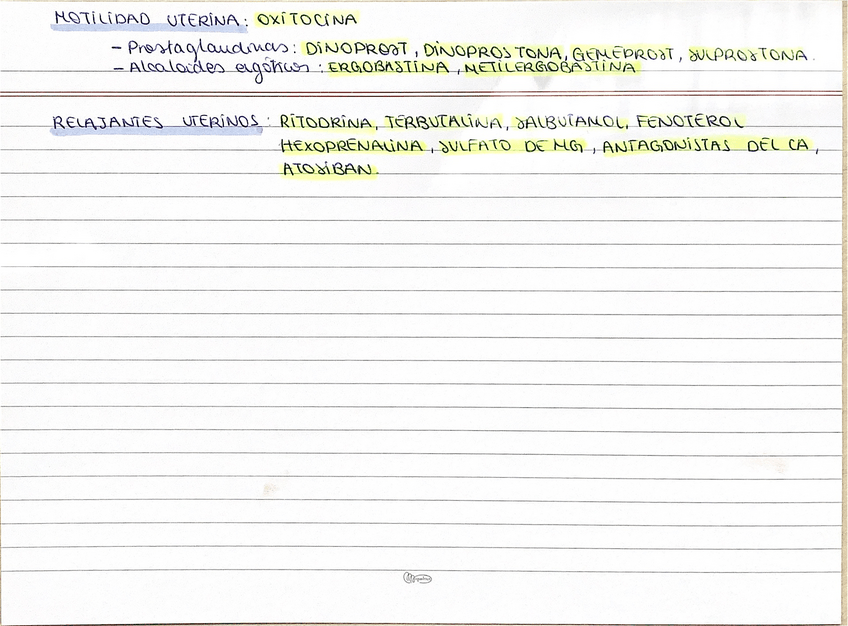 MOTILIDAD UTERINA: OXITOCINA
- Prostaglandinas: DINOPROST, DINOPROSTONA, GEMEPROST, SULPROSTONA.
- Alcaloides ergóticos: ERGOBASTINA, METILERGOBASTINA
RELAJANTES UTERINOS: RITODRINA, TERBUTALINA, SALBUTAMOL, FENOTEROL
HEXOPRENALINA, SULFATO DE MG, ANTAGONISTAS DEL CA,
ATOSIBAN.